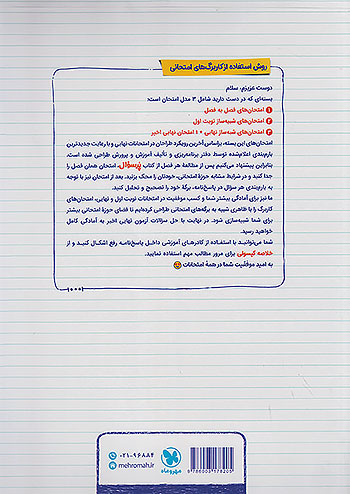 روش استفاده از کاربرگ‌های امتحانی
دوست عزیزم، سلام
بسته‌ای که در دست دارید شامل ۳ مدل امتحان است:
۱ امتحان‌های فصل به فصل
۲ امتحان‌های شبیه‌ساز نوبت اول
۳ امتحان‌های شبه‌ساز نهایی + ۱ امتحان نهایی اخیر
امتحان‌های این بسته، براساس آخرین رویکرد طراحان در امتحانات نهایی و با رعایت جدیدترین
بارم‌بندی اعلام‌شده توسط دفتر برنامه‌ریزی و تألیف آموزش و پرورش طراحی شده است.
بنابراین پیشنهاد می‌کنیم پس از مطالعهٔ هر فصل از کتاب پرسؤال، امتحان همان فصل را
جدا کنید و در شرایط مشابه حوزهٔ امتحانی، خودتان را محک بزنید. بعد از امتحان نیز با توجه
به بارم‌بندی هر سؤال در پاسخ‌نامه، برگهٔ خود را تصحیح و تحلیل کنید.
ما نیز برای آمادگی بیشتر شما و کسب موفقیت در امتحانات نوبت اول و نهایی، امتحان‌های
کاربرگ را با ظاهری شبیه به برگه‌های امتحانی طراحی کرده‌ایم تا فضای حوزهٔ امتحانی بیشتر
برای شما شبیه‌سازی شود. در نهایت با حل سؤالات آزمون نهایی اخیر به آمادگی کامل
خواهید رسید.
شما می‌توانید با استفاده از کادرهای آموزشی داخل پاسخ‌نامه رفع اشکال کنید و از
خلاصه کپسولی برای مرور مطالب مهم استفاده نمایید.
به امید موفقیت شما در همهٔ امتحانات
۰۲۱-۹۶۸۸۴
mehromah.ir
مهروماه
9 786003 178205